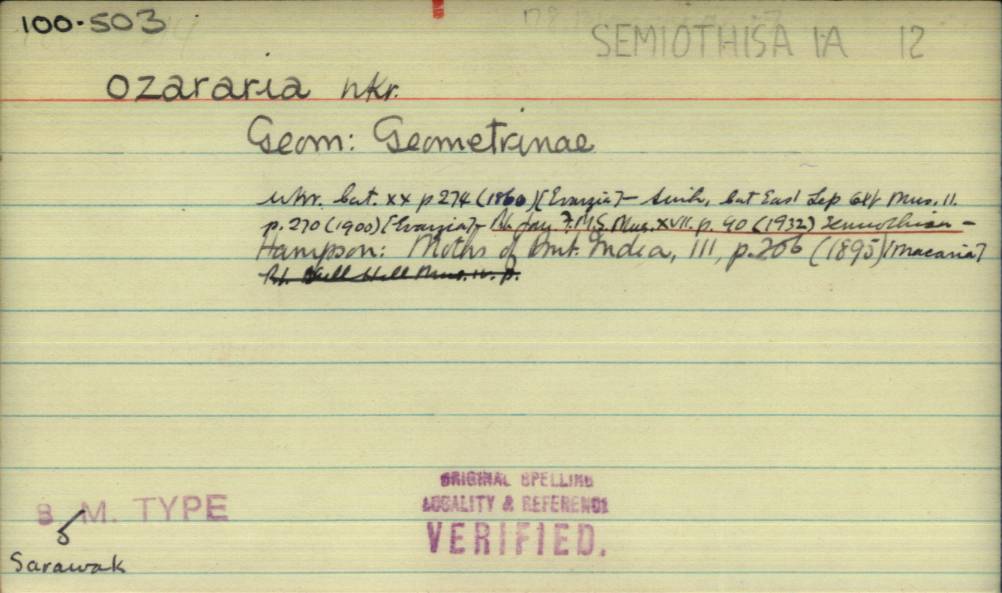 100.503
SEMIOTHISA IA 12
ozararia wkr.
Geom: Geometrinae
Wkr. Cat. xx p 274 (1860) [Evarzia] – Swinh, Cat East Lep Oxf Mus. II.
p. 270 (1900) [Evarzia] – Mus. XVII. p. 90 (1932) Semiothisa –
Hampson: Moths of Brit. India, III, p. 206 (1895) [Macaria]
B. M. TYPE
♂
Sarawak
ORIGINAL SPELLING
LOCALITY & REFERENCE
VERIFIED.